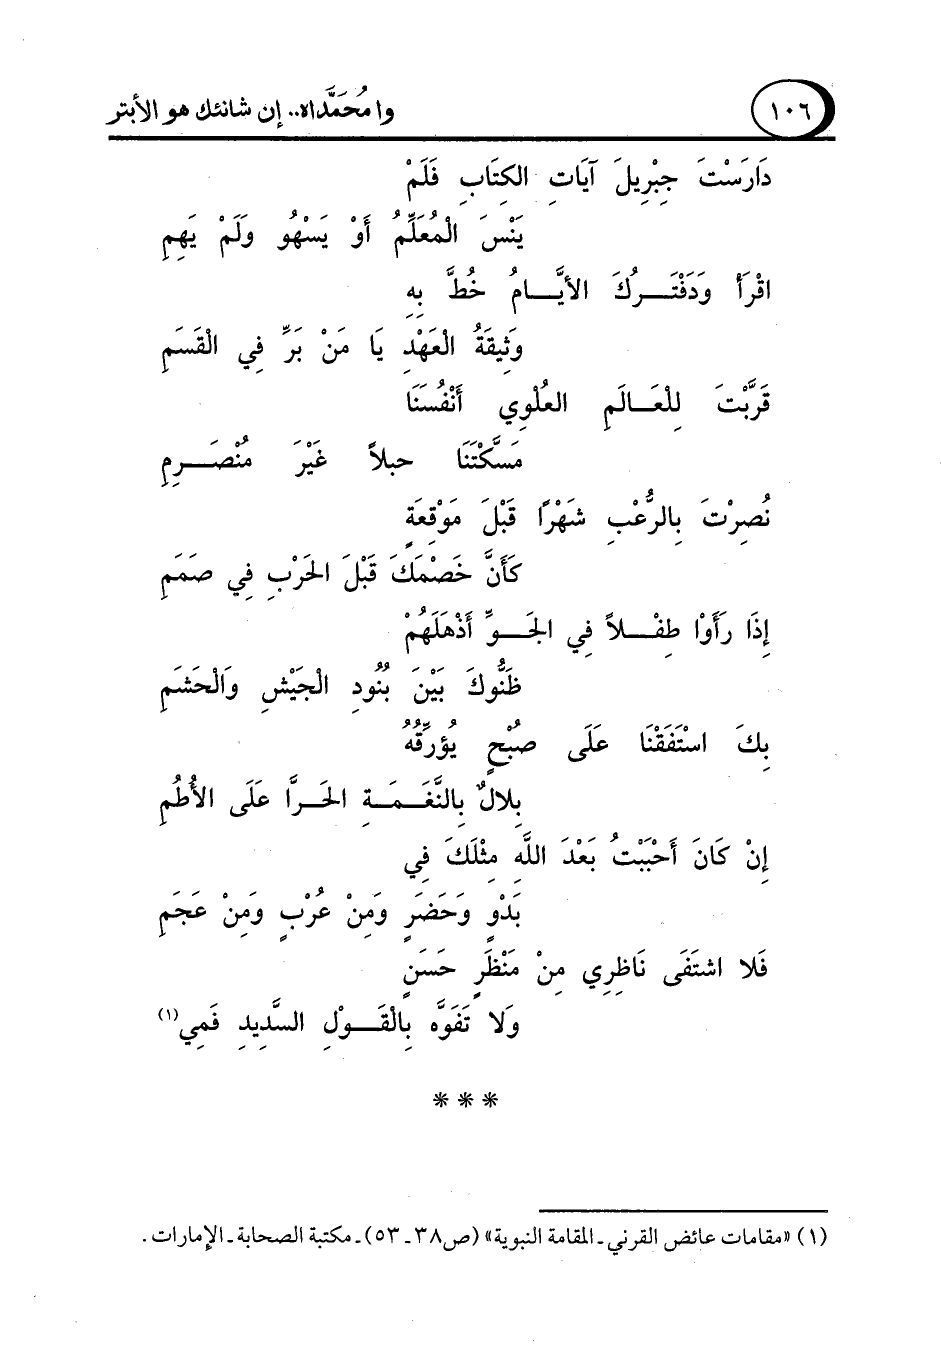 ١٠٦
وا مُحَمَّداه.. إن شانئك هو الأبتر
دَارَسْتَ جِبْرِيلَ آيَاتِ الكِتَابِ فَلَمْ
يَنْسَ الْمُعَلِّمُ أَوْ يَسْهُو وَلَمْ يَهِمِ
اقْرَأْ وَدَفْتَـــرُكَ الأيَّـــامُ خُطَّ بِهِ
وَثِيقَةُ الْعَهْدِ يَا مَنْ بَرَّ فِي الْقَسَمِ
قَرَّبْتَ لِلْعَـــالَمِ العُلْوِي أَنْفُسَنَا
مَسَّكْتَنَا حبلاً غَيْرَ مُنْصَـــرِمِ
نُصِرْتَ بِالرُّعْبِ شَهْرًا قَبْلَ مَوْقِعَةٍ
كَأَنَّ خَصْمَكَ قَبْلَ الحَرْبِ فِي صَمَمِ
إِذَا رَأَوْا طِفْـــلاً فِي الجَـــوِّ أَذْهَلَهُمْ
ظَنُّوكَ بَيْنَ بُنُودِ الْجَيْشِ وَالْحَشَمِ
بِكَ اسْتَفَقْنَا عَلَى صُبْحٍ يُؤرِّقُهُ
بِلالٌ بِالنَّغَـــمَـــةِ الحَـــرَّا عَلَى الأُطُمِ
إِنْ كَانَ أَحْبَبْتُ بَعْدَ اللَّهِ مِثْلَكَ فِي
بَدْوٍ وَحَضَرٍ وَمِنْ عُرْبٍ وَمِنْ عَجَمِ
فَلا اشْتَفَى نَاظِرِي مِنْ مَنْظَرٍ حَسَنٍ
وَلا تَفَوَّه بِالْقَـــوْلِ السَّدِيدِ فَمِي(١)
***
(١) «مقامات عائض القرني ـ المقامة النبوية» (ص٣٨ ـ ٥٣) ـ مكتبة الصحابة ـ الإمارات .